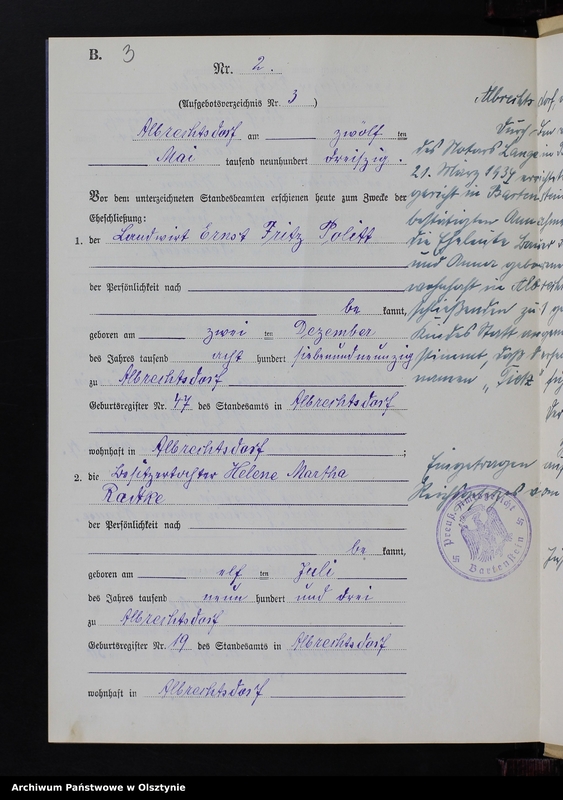 B. 3
Nr. 2.
(Aufgebotsverzeichnis Nr. 3)
Albrechtsdorf am zwölf ten
Mai tausend neunhundert dreißig.
Vor dem unterzeichneten Standesbeamten erschienen heute zum Zwecke der
Eheschließung:
1. der Landwirt Ernst Fritz Politt
der Persönlichkeit nach
be kannt,
geboren am zwei ten Dezember
des Jahres tausend acht hundert siebenundneunzig
zu Albrechtsdorf
Geburtsregister Nr. 47 des Standesamts in Albrechtsdorf
wohnhaft in Albrechtsdorf ;
2. die Besitzertochter Helene Martha
Radtke
der Persönlichkeit nach
be kannt,
geboren am elf ten Juli
des Jahres tausend neun hundert und drei
zu Albrechtsdorf
Geburtsregister Nr. 19 des Standesamts in Albrechtsdorf
wohnhaft in Albrechtsdorf
Albrechtsdorf,
Durch den
des Notars Lange in
21. März 1934
gericht in Bartenstein
bestätigten
die Eheleute Bauer
und Anna geborene
wohnhaft in Albrechts
schließenden zu 1
Kindes Statt
stimmt, daß
namen „
Eingetragen auf
Preuß. Amtsgericht
Bartenstein
Archiwum Państwowe w Olsztynie